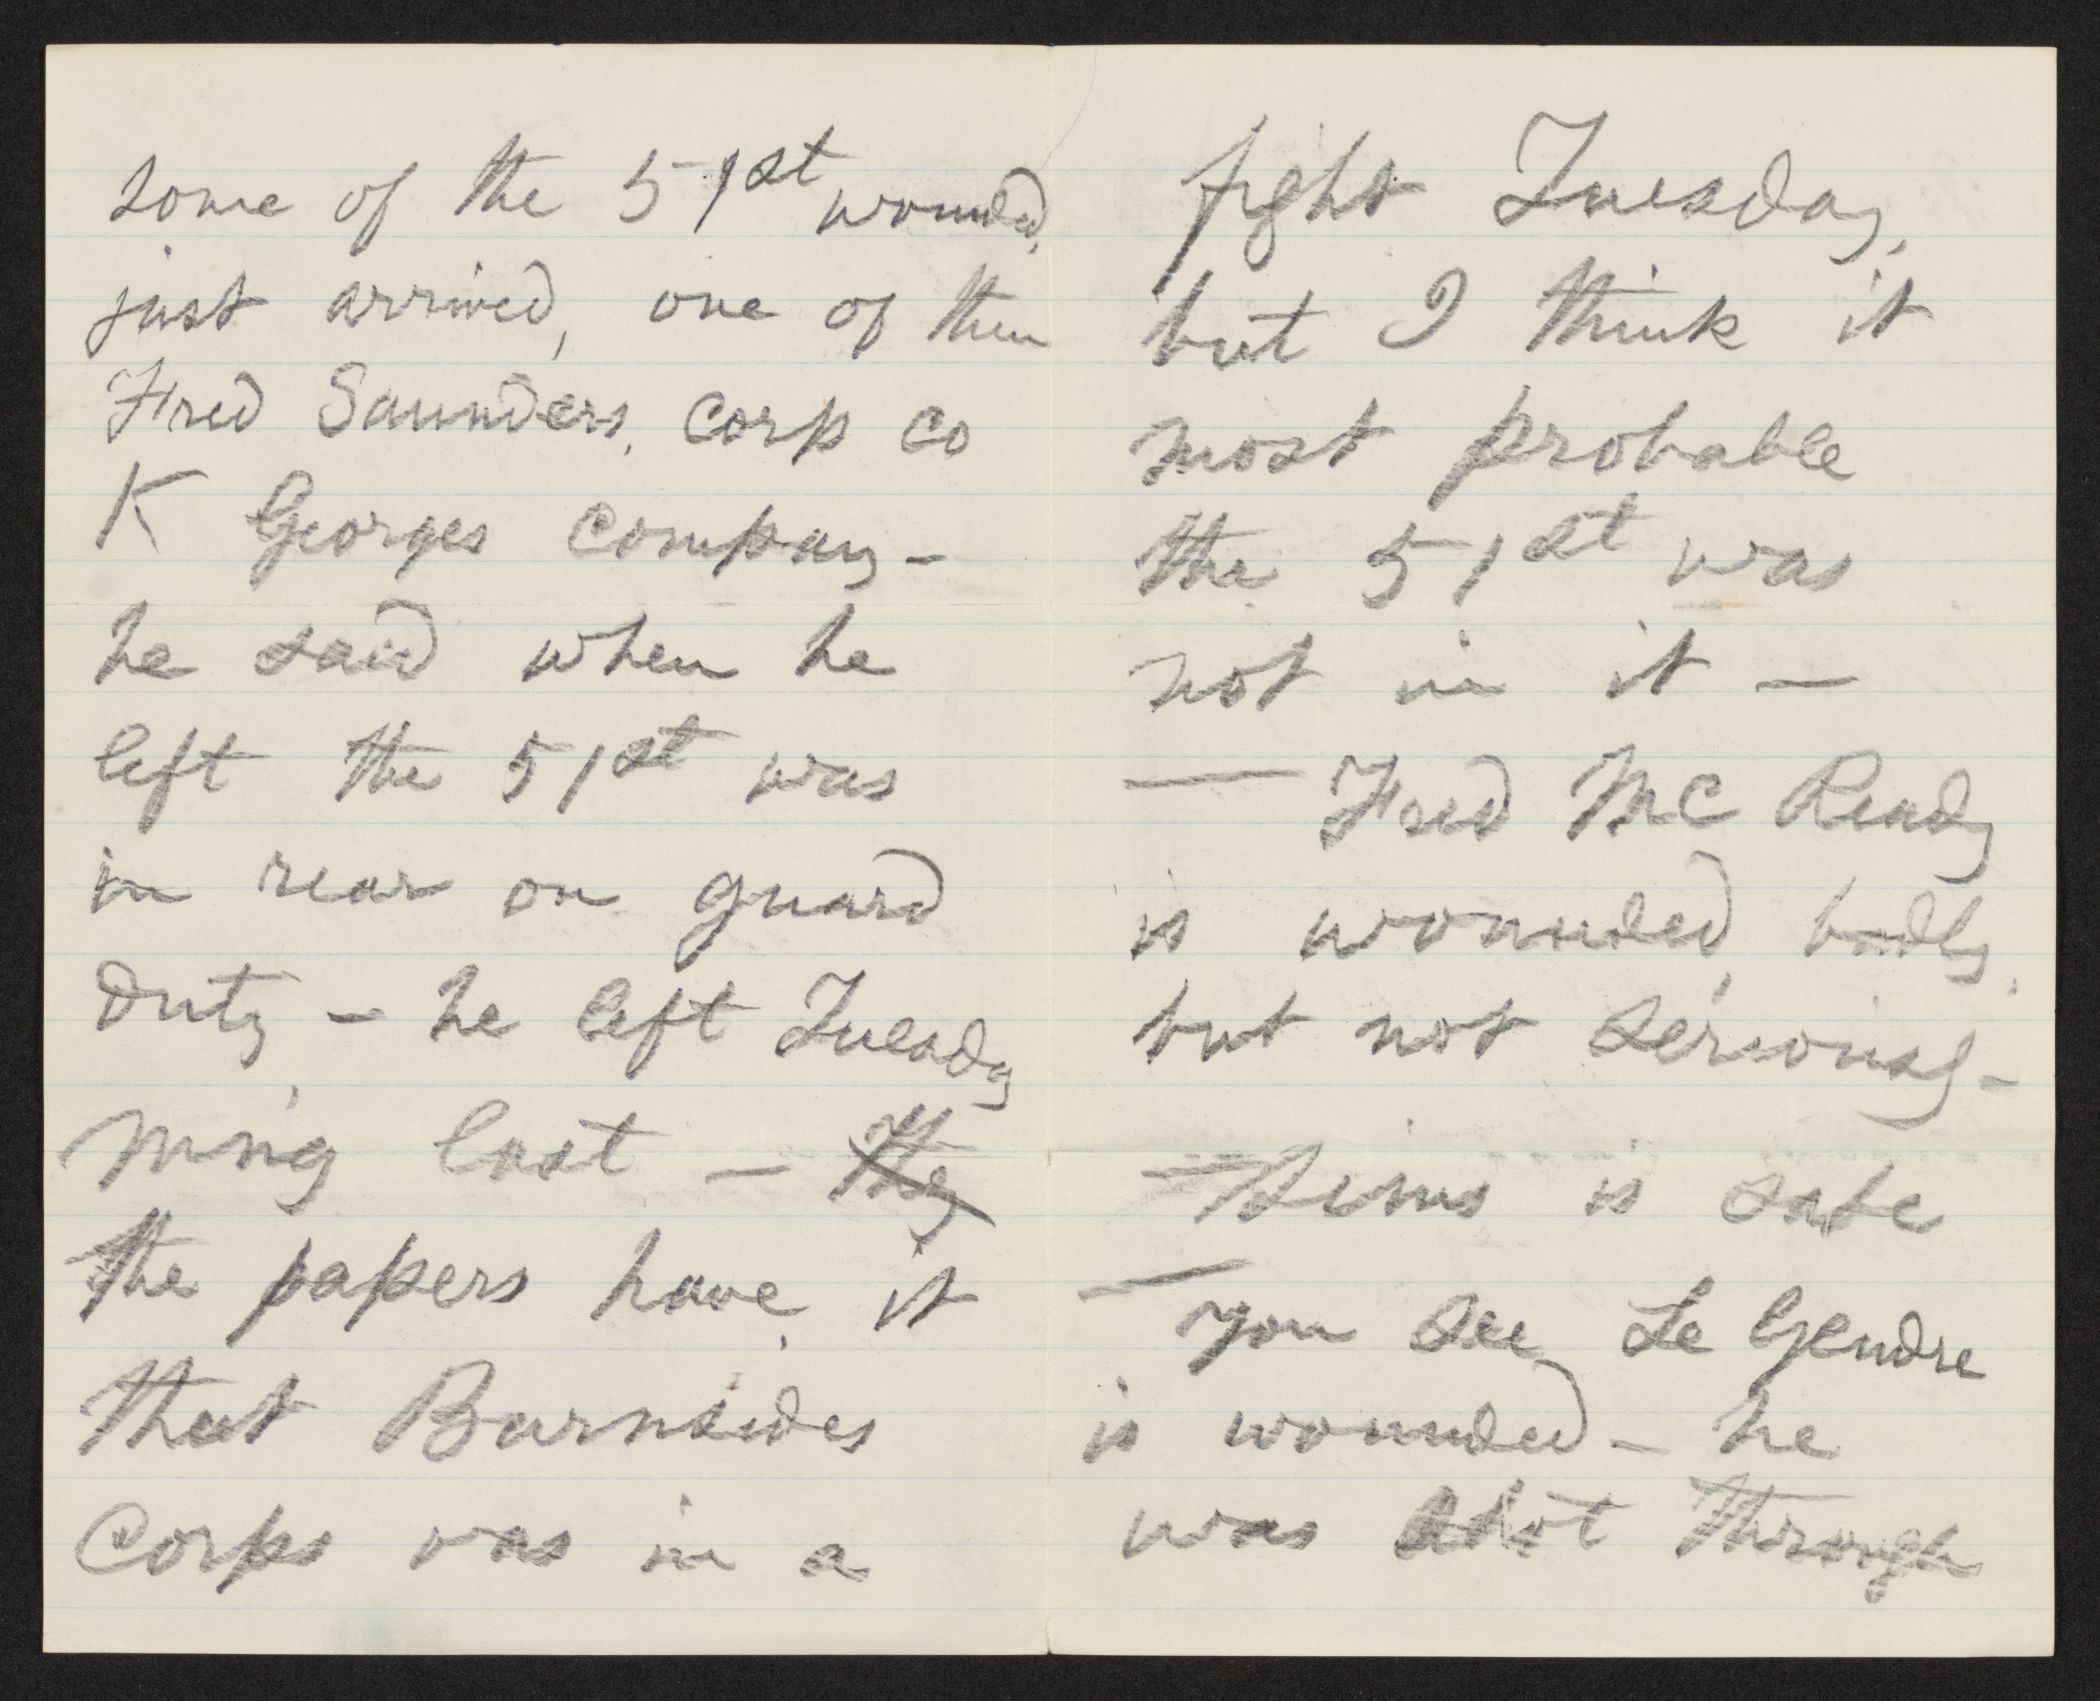 some of the 51st wounded,
just arrived, one of them
Fred Saunders, corp co
K Georges company –
he said when he
left the 51st was
in rear on guard
duty – he left Tuesday
mn'g last – they
the papers have it
that Burnsides
Corps was in a
fight Tuesday,
but I think it
most probable
the 51st was
not in it –
— Fred Mc Ready
is wounded badly,
but not seriously –
– Sims is safe
— You see Le Gendre
is wounded – he
was shot through